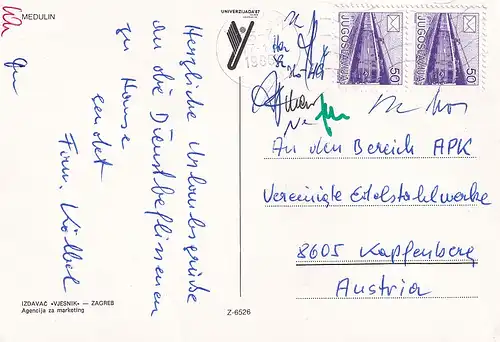 MEDULIN
Herzliche Urlaubsgrüße
an die Dienstbeflissenen
zu Hause
sendet
Fam. Kölbel
UNIVERZIJADA'87
JUGOSLAVIJA
50
JUGOSLAVIJA
50
An den Bereich APK
Vereinigte Edelstahlwerke
8605 Kapfenberg
Austria
IZDAVAČ «VJESNIK» — ZAGREB
Agencija za marketing
Z-6526